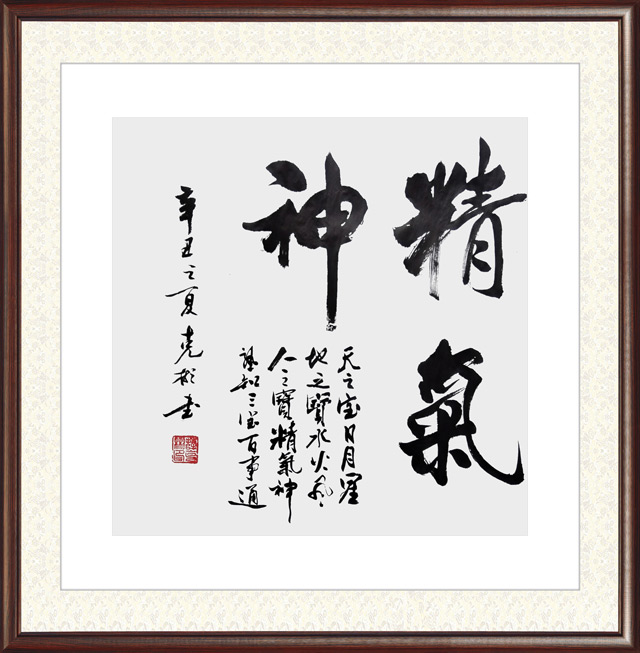 精氣
神
天之宝日月星
地之寶水火風
人之寶精氣神
知三宝百事通
辛丑之夏書